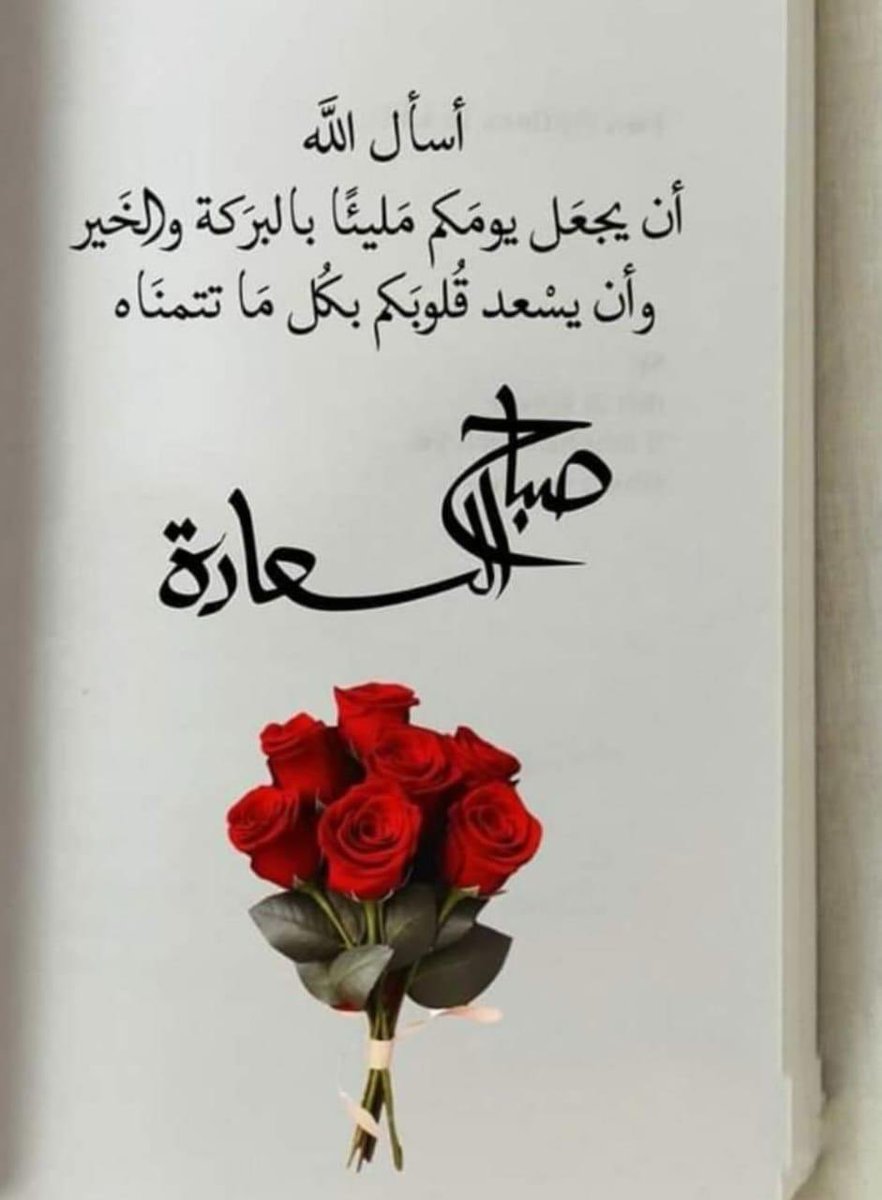 أسأل اللَّه
أن يجعَل يومَكم مَليئًا بالبرَكة والخَير
وأن يسْعد قُلوبَكم بكُل مَا تتمنَاه
صباح
السعادة